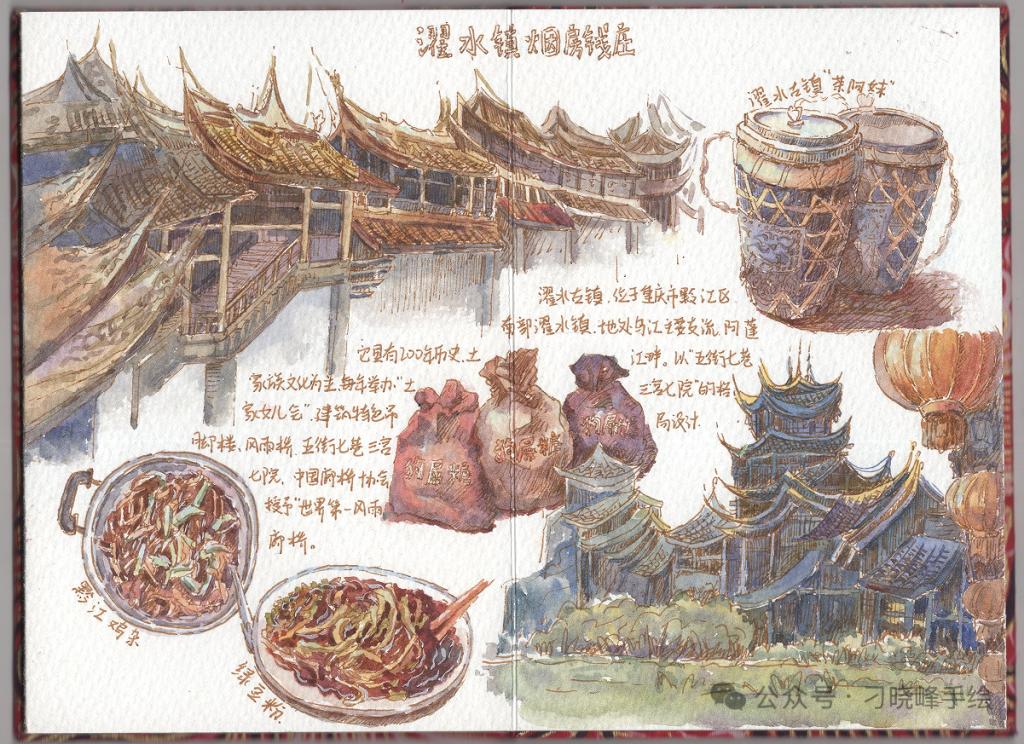 濯水镇烟房钱庄
濯水古镇"茶阿妹"
濯水古镇,位于重庆市黔江区
南部濯水镇.地处乌江主要支流,阿蓬
江畔。以"五街七巷
三宫七院"的格
局设计.
它里有200年历史.土
家族文化为主.每年举办"土
家女儿会".建筑特色吊
脚楼.风雨桥.五街七巷三宫
七院.中国廊桥协会
授予"世界第一风雨
廊桥。
狗屎糖
狗屎糖
狗屎糖
黔江鸡杂
绿豆粉
公众号·刁晓峰手绘